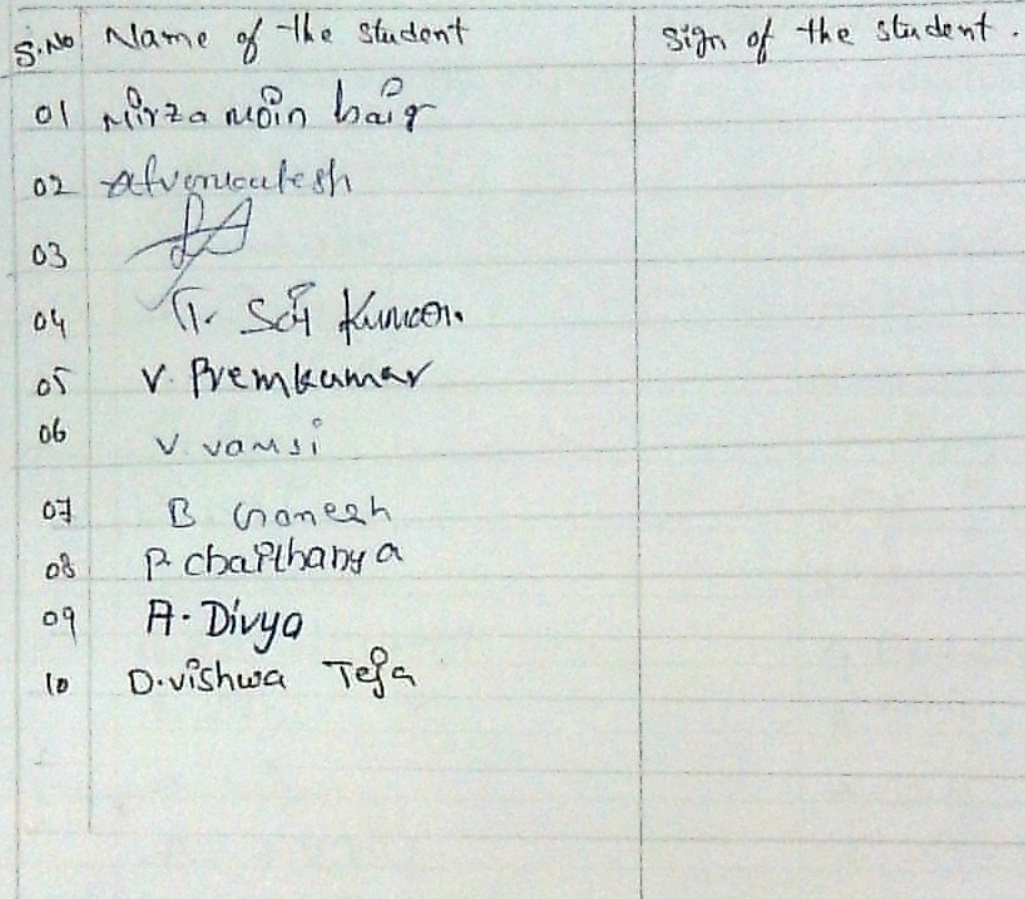 S.No Name of the student sign of the student.
01 Mirza Moin baig
02
03
04 T. Sai Kumar.
05 V. Premkumar
06 V. vamsi
07 B. Ganesh
08 P. chaithanya
09 A. Divya
10 D. vishwa Teja